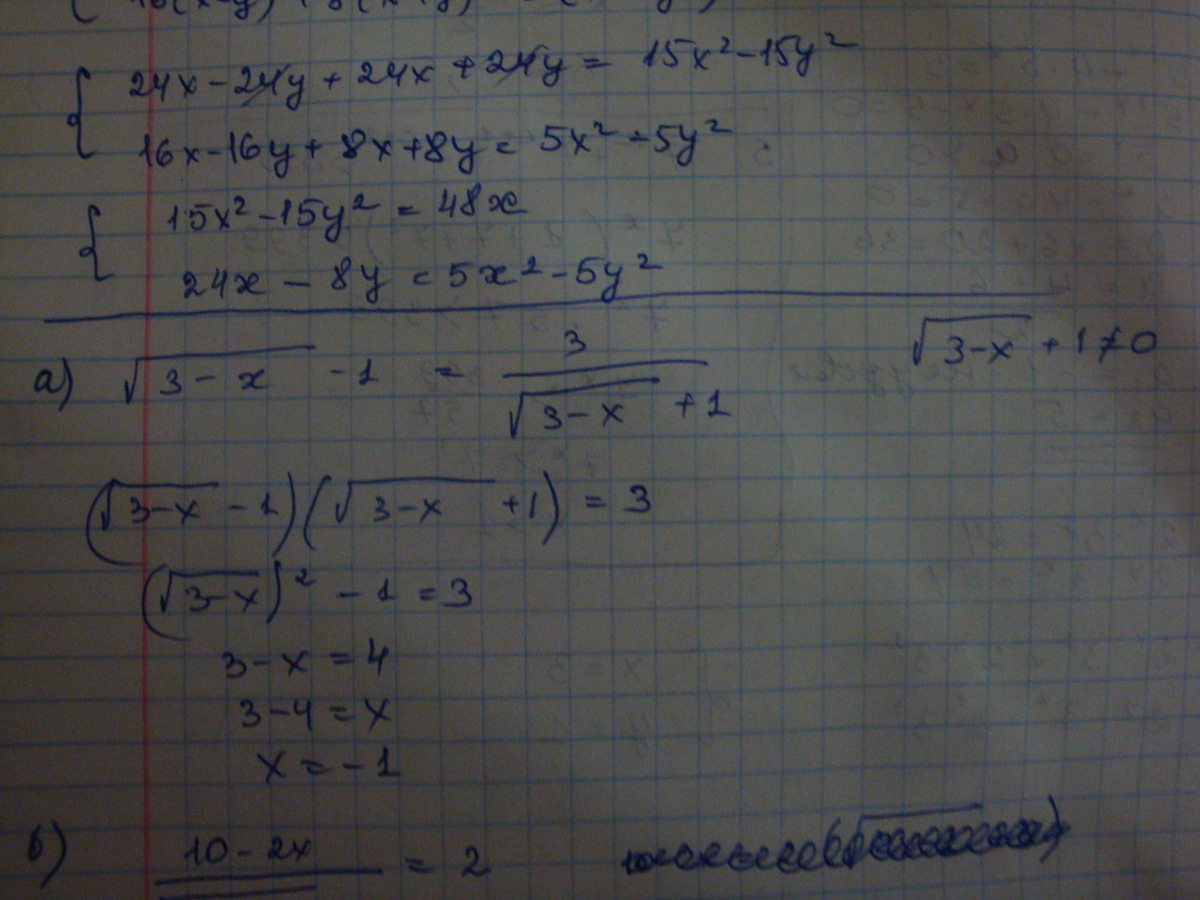 24x - 24y + 24x + 24y = 15x² - 15y²
16x - 16y + 8x + 8y = 5x² - 5y²
15x² - 15y² = 48x
24x - 8y = 5x² - 5y²
а) √(3 - x) - 1 = 3/(√(3 - x) + 1) √(3 - x) + 1 ≠ 0
(√(3 - x) - 1)(√(3 - x) + 1) = 3
(√(3 - x))² - 1 = 3
3 - x = 4
3 - 4 = x
x = -1
б) 10 - 2x = 2